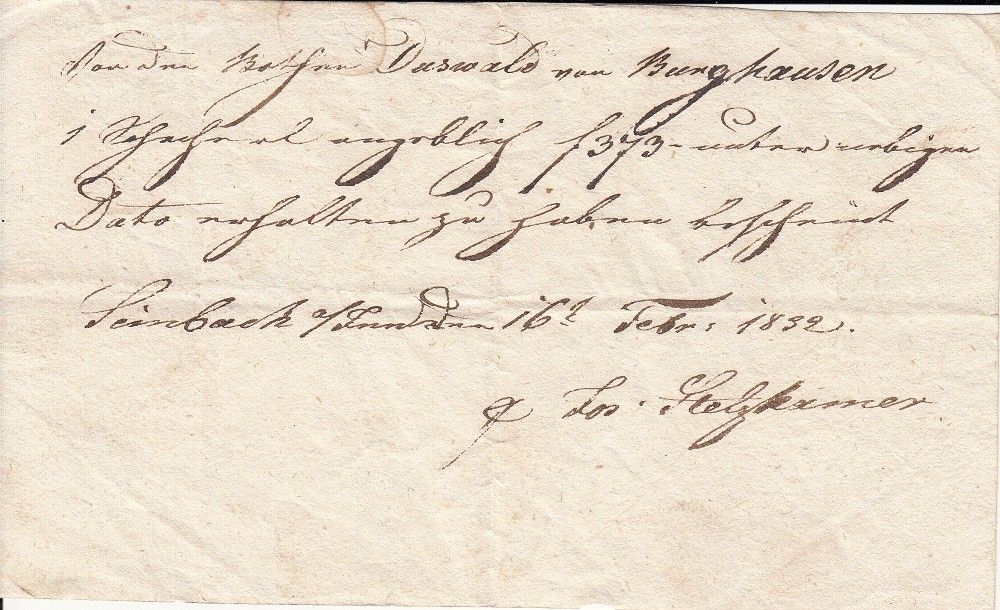 Von den Bothen Daswald von Burghausen
1 Schacherl angeblich f 373 - unter uebigen
Dato erhalten zu haben bescheint
Simbach a/Inn den 16t Febr: 1832.
Jos. Stelzhamer